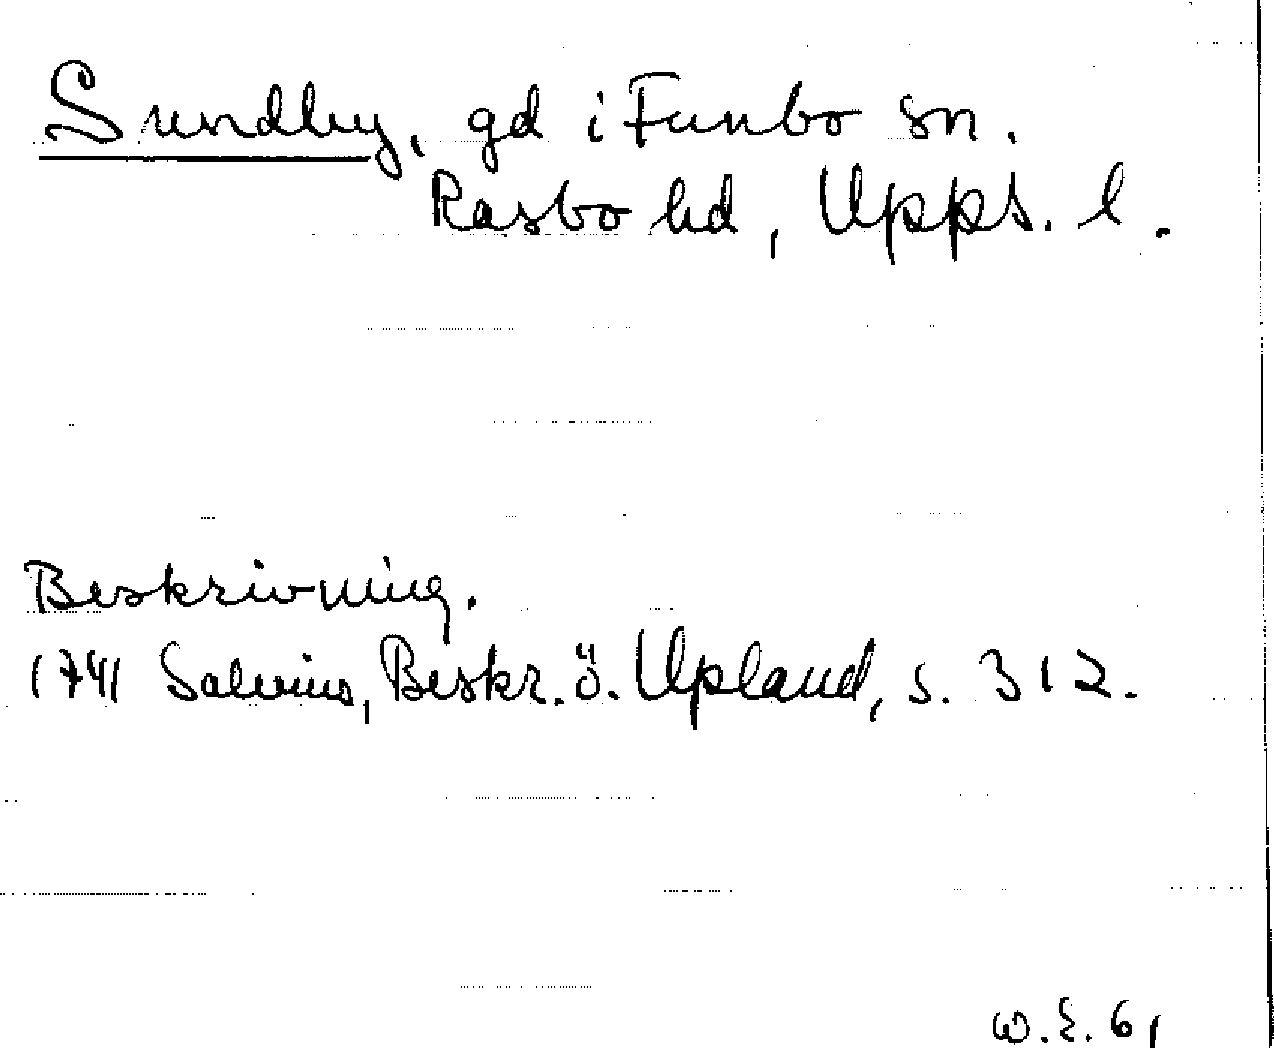 Sundby, gd i Funbo sn.
Rasbo hd, Upps. l.
Beskrivning.
1741 Salvius, Beskr. ö. Upland, s. 312.
W. E. 61